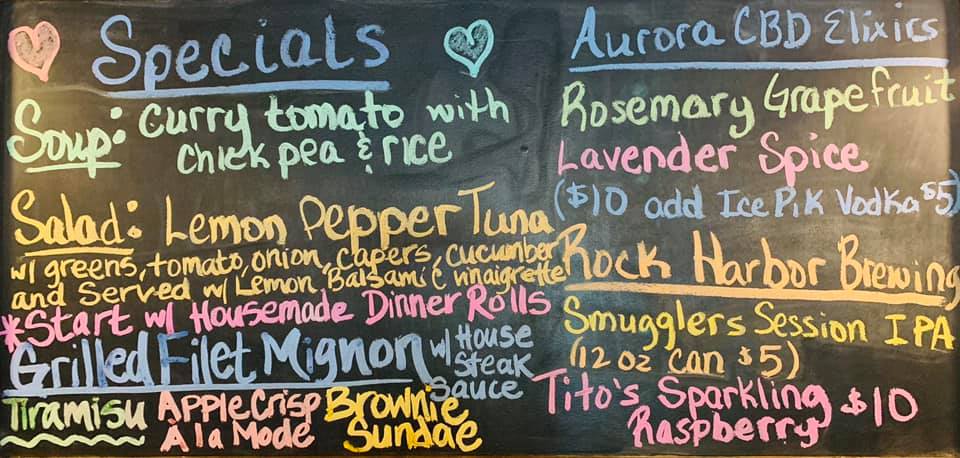 Specials
Soup: Curry tomato with
chick pea & rice
Salad: Lemon Pepper Tuna
w/ greens, tomato, onion, capers, cucumber
and Served w/ Lemon Balsamic vinaigrette
*Start w/ Housemade Dinner Rolls
Grilled Filet Mignon w/ House
Steak
Sauce
Tiramisu Apple Crisp
À la Mode
Brownie
Sundae
Aurora CBD Elixirs
Rosemary Grapefruit
Lavender Spice
($10 add Ice Pik Vodka $5)
Rock Harbor Brewing
Smugglers Session IPA
(12 oz can $5)
Tito's Sparkling
Raspberry $10